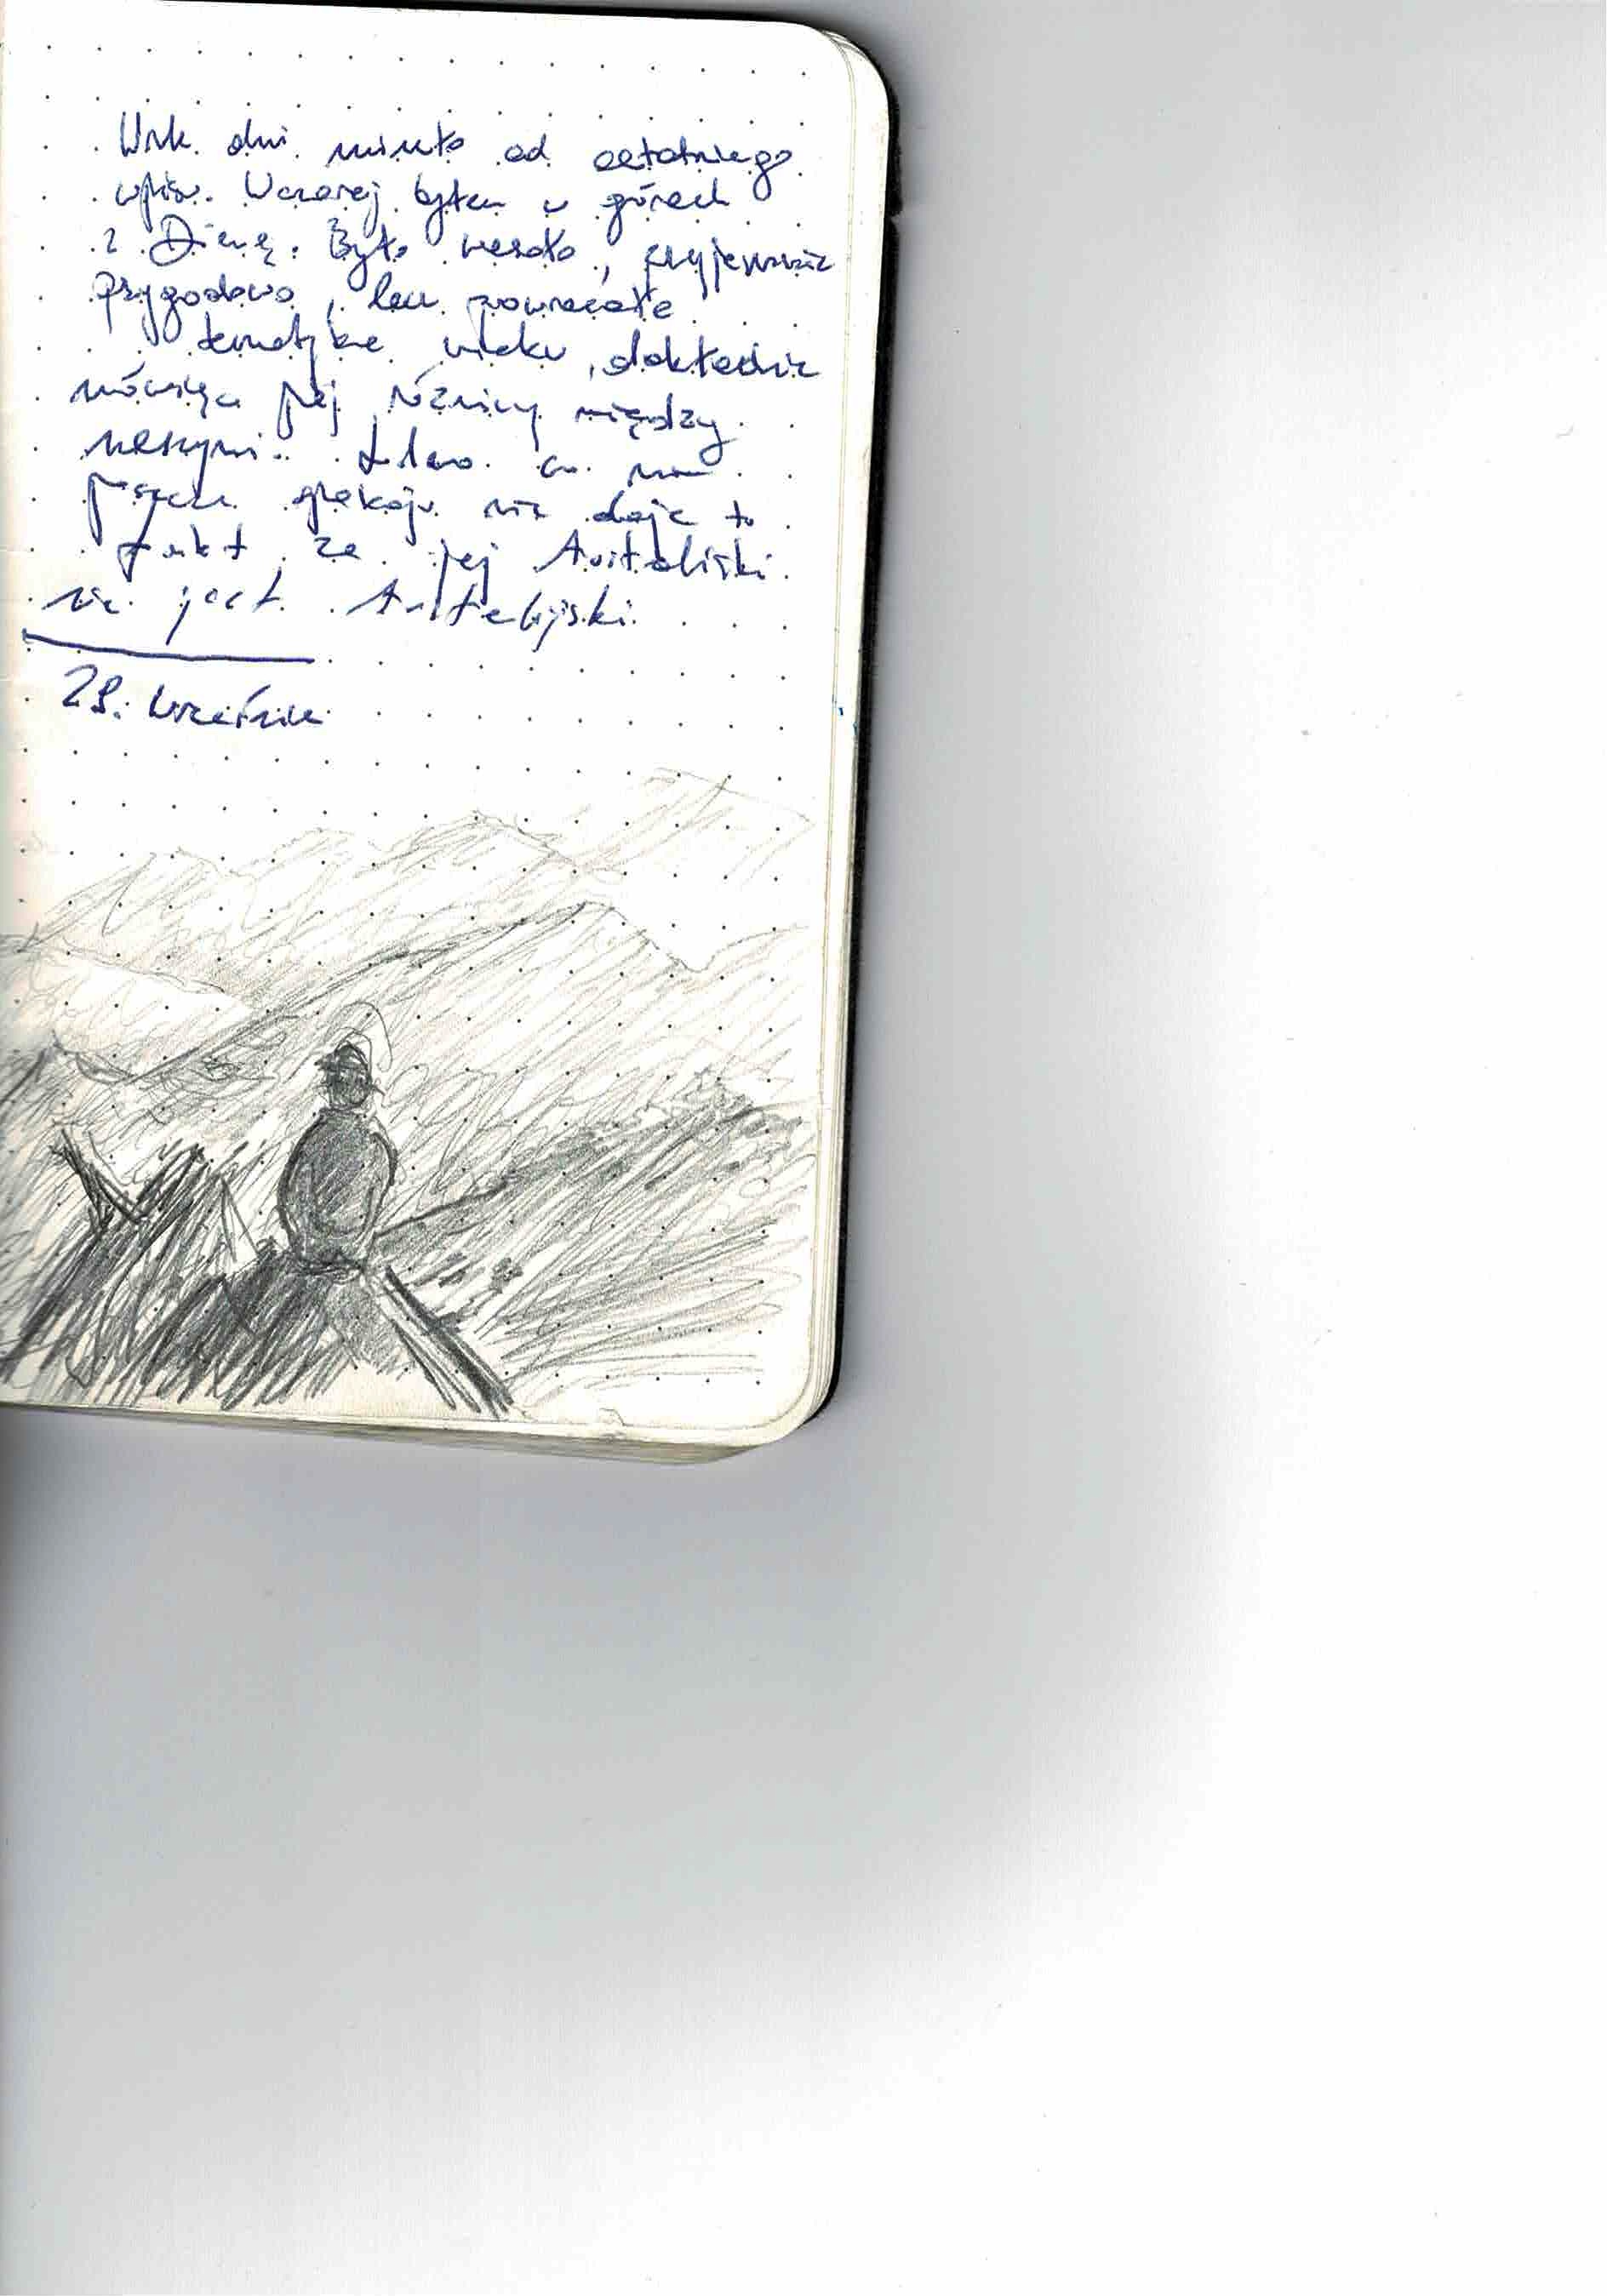 dni minęło od ostatniego
wpisu. Wczoraj byłem w górach
z Dianą. Było wesoło, przyjemnie
przygodowo, lecz powracała
tematyka wieku, dokładnie
mówiąc jej różnicy między
naszymi. co mi
spokoju nie daje to
fakt, że jej
nie jest
29. września